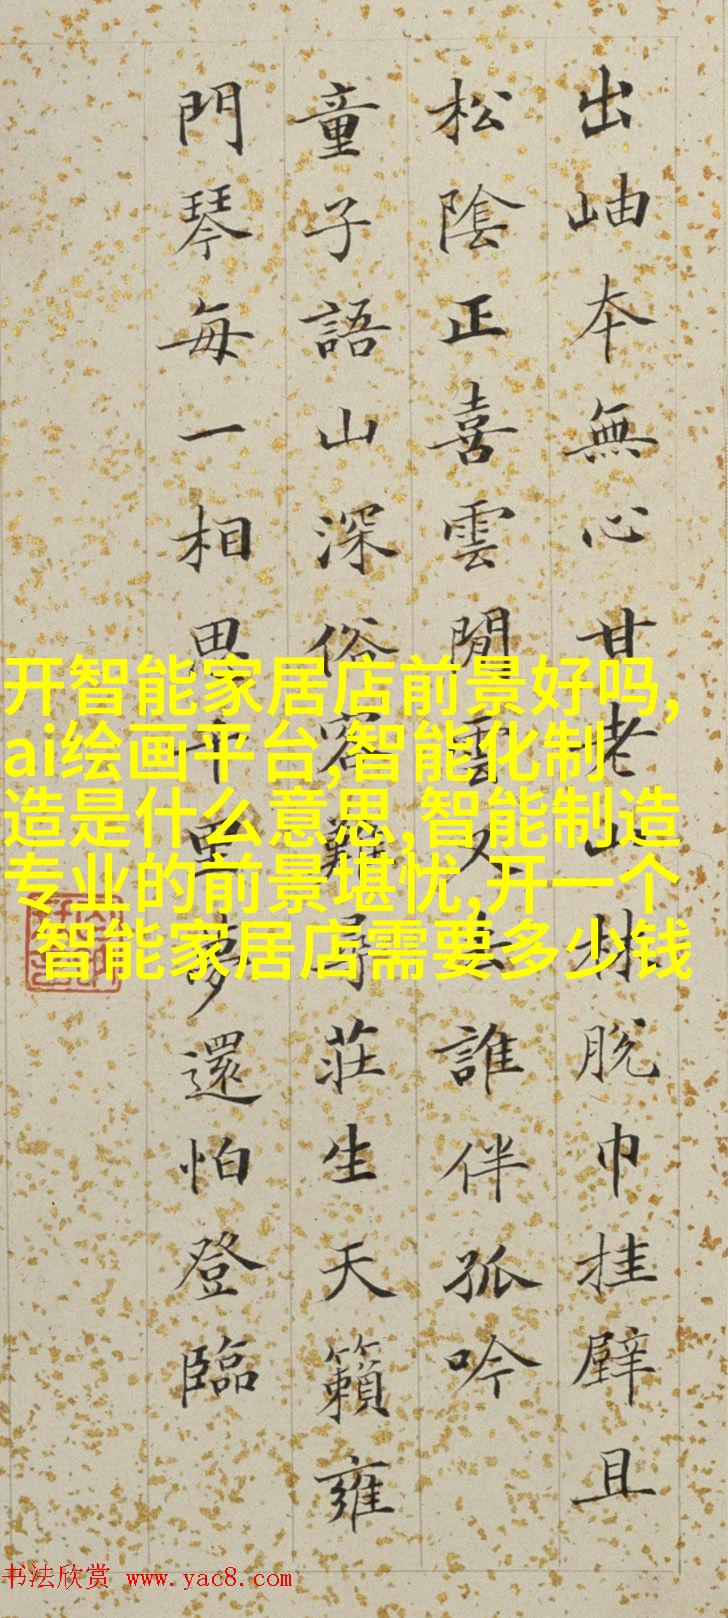 出岫本無心甘老山林脫巾挂壁且
松陰正喜雲閒雲又去誰伴孤吟
童子語山深俗客難尋莊生天籟雍
門琴每一相思千里夢還怕登臨
开智能家居店前景好吗,
ai绘画平台,智能化制
造是什么意思,智能制造
专业的前景堪忧,开一个
智能家居店需要多少钱
书法欣赏 www.yac8.com